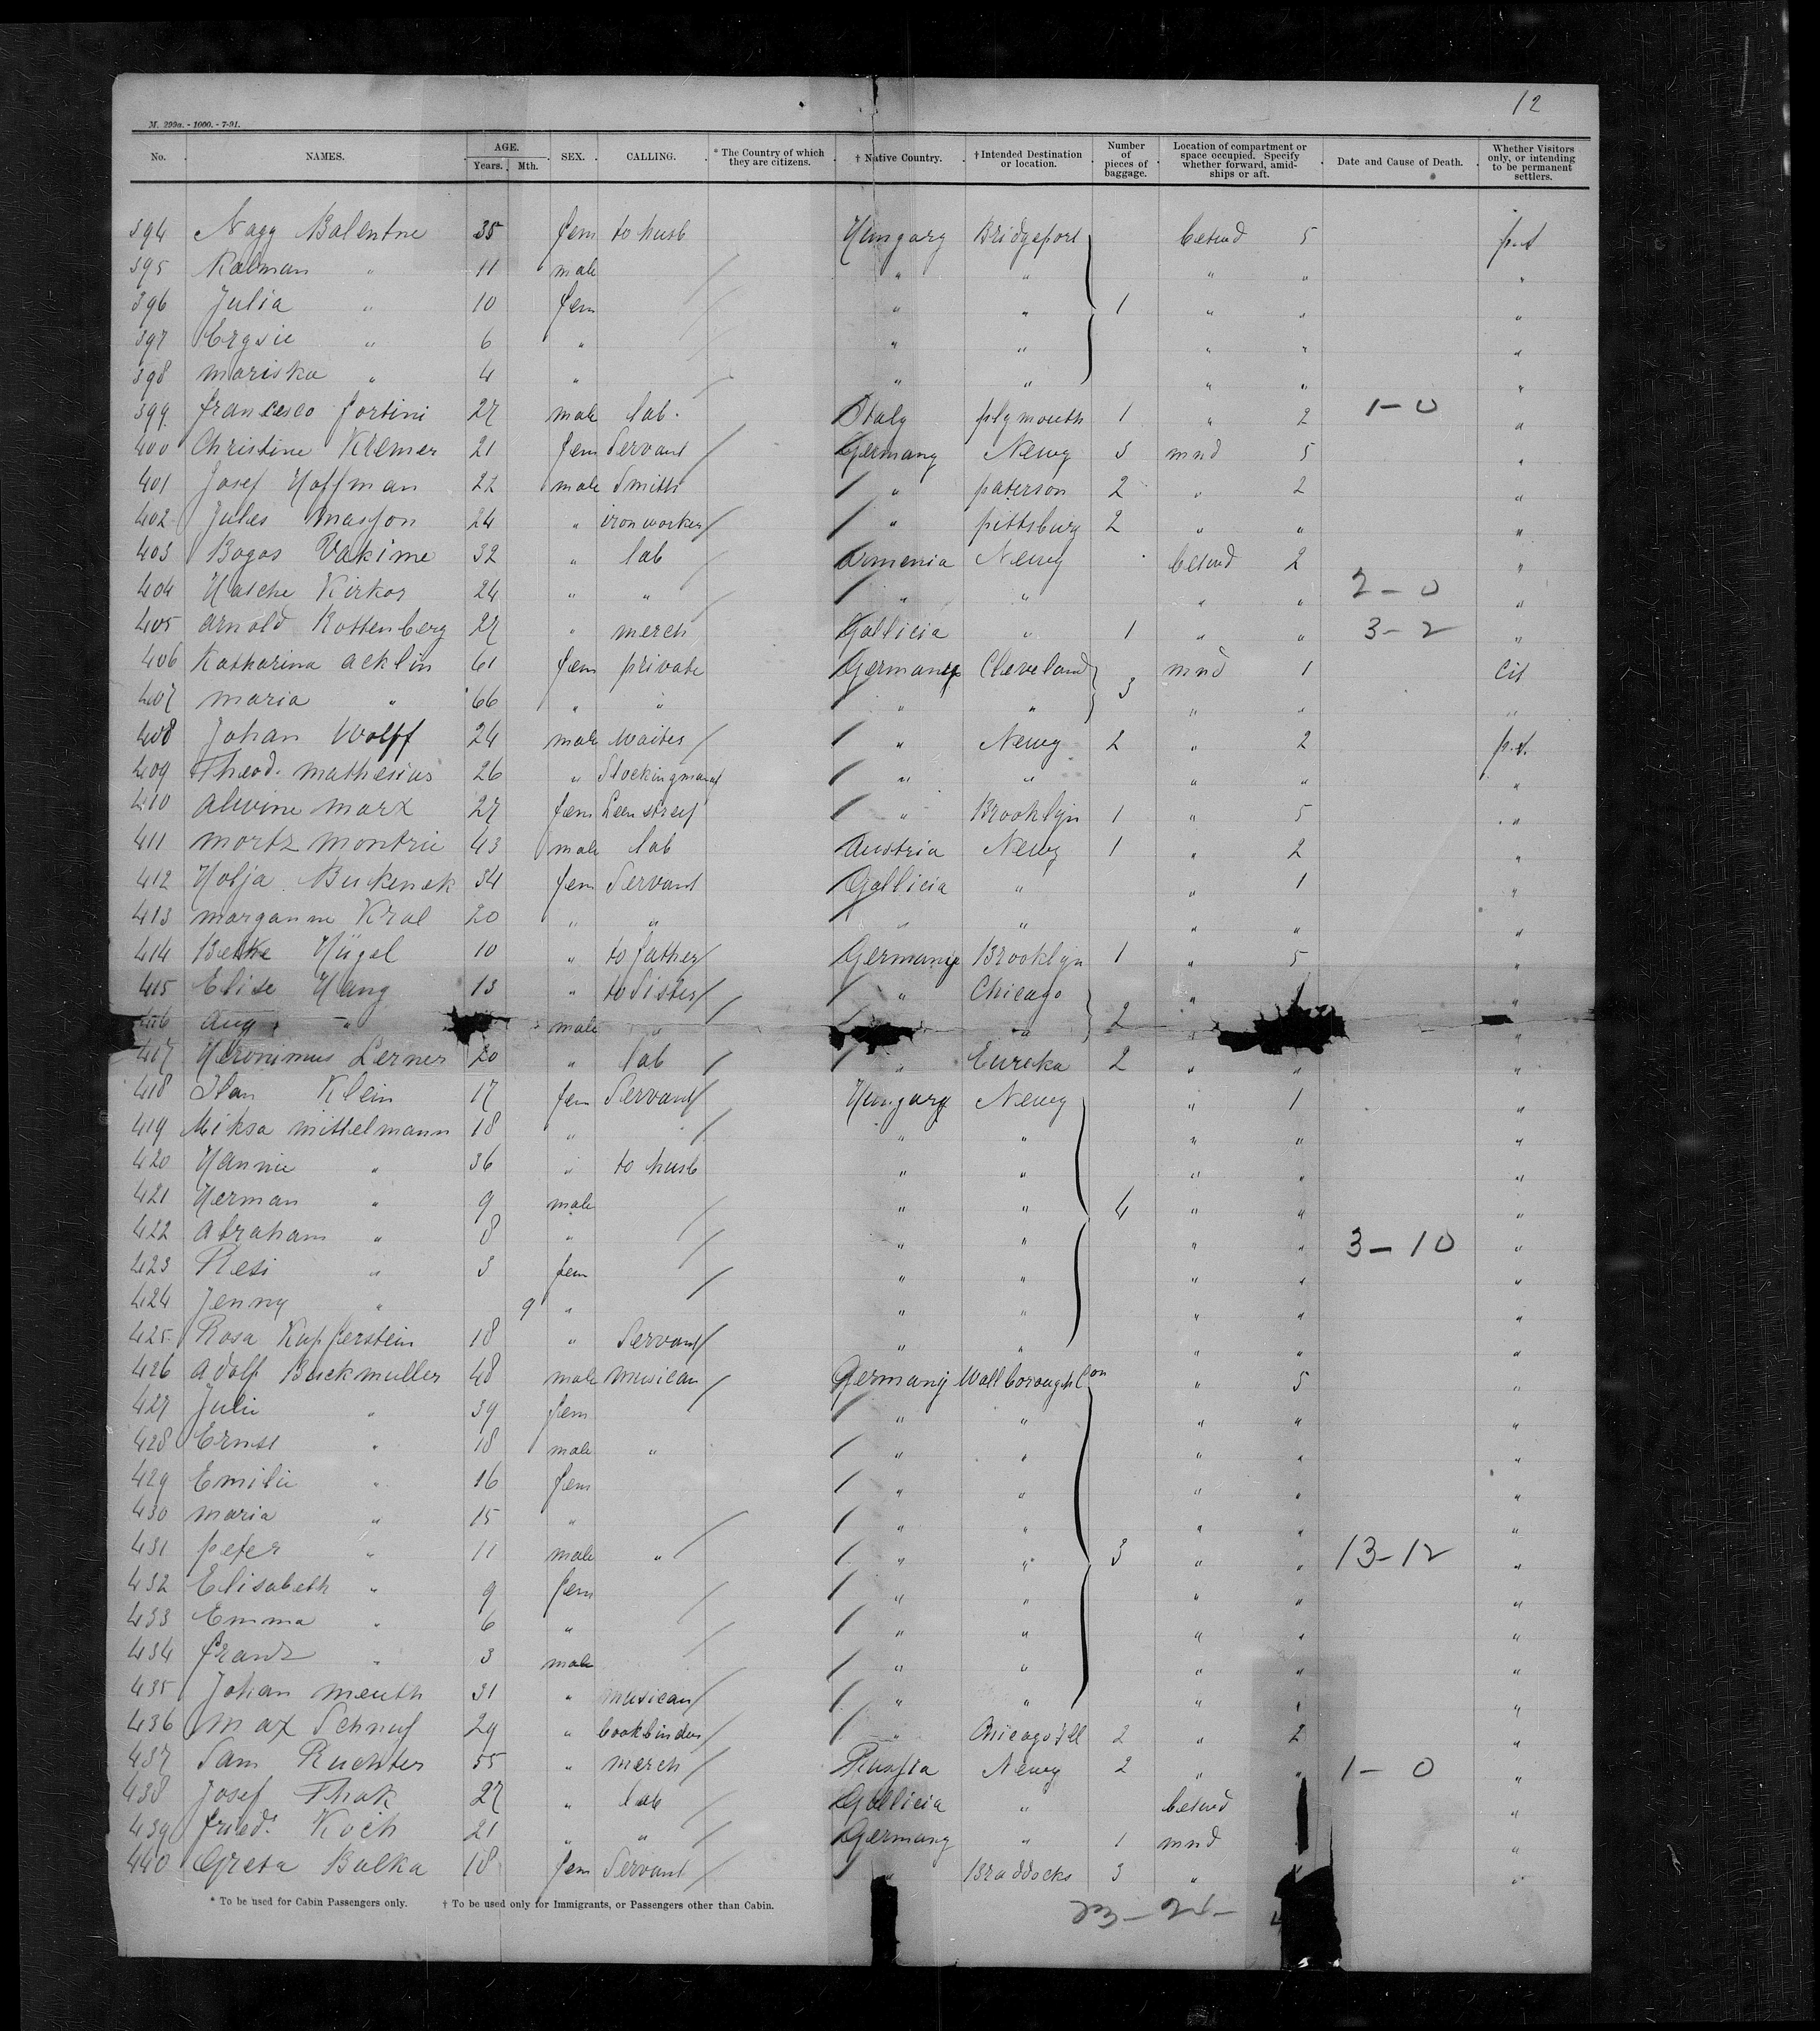 12
M. 299a. - 1000. - 7-91.
No. NAMES. AGE. Years. Mth. SEX. CALLING. * The Country of which they are citizens. † Native Country. † Intended Destination or location. Number of pieces of baggage. Location of compartment or space occupied. Specify whether forward, amidships or aft. Date and Cause of Death. Whether Visitors only, or intending to be permanent settlers.
394 Nagy Balentne 35 fem to husb Hungary Bridgeport betwd 5
395 Kalman " 11 male " " " " "
396 Julia " 10 fem " " 1 " " "
397 Ergsie " 6 " " " " " "
398 mariska " 4 " " " " " "
399 francesco fortini 27 male lab. Italy plymouth 1 " 2 1-0 "
400 Christine Kremer 21 fem Servant Germany Newy 3 mnd 5 "
401 Josef Hoffman 22 male Smith " paterson 2 " 2 "
402 Jules Masson 24 " iron worker " pittsburg 2 " " "
403 Bogos Vakime 32 " lab Armenia Newy betwd 2 "
404 Hatche Kirkor 24 " " " " " " 2-0 "
405 arnold Rottenberg 27 " merch Gallicia " 1 " " 3-2 "
406 Katharina acklin 61 fem private Germany Cleveland 3 mnd 1 Cit
407 maria " 66 " " " " " " "
408 Johan Wolff 24 male Waiter " Newy 2 " 2 p.s.
409 Theod. mathesius 26 " " " " " "
410 alwine marx 27 fem " Brooklyn 1 " 5 "
411 mortz montrie 43 male lab Austria Newy 1 " 2 "
412 Hotja Buckenek 34 fem Servant Gallicia " " 1 "
413 morganne Kral 20 " " " " " " "
414 Betke Hügel 10 " to father Germany Brooklyn 1 " 5 "
415 Elise Hang 13 " to Sister " Chicago 2 " "
416 Aug " male " " "
417 Heronimus Lerner 20 " lab " Eureka 2 " " "
418 Ilan Klein 17 fem Servant Hungary Newy " 1 "
419 Miksa mittelmann 18 " " " " " " "
420 Hannie " 36 " to husb " " " " "
421 Herman " 9 male " " 4 " " "
422 Abraham " 8 " " " " " 3-10 "
423 Resi " 3 fem " " " " "
424 Jenny " 9 " " " " " "
425 Rosa Kupferstein 18 " Servant " " " " "
426 Adolf Buckmuller 48 male musican Germany Wallborough Con " 5 "
427 Julie " 39 fem " " " " "
428 Ernst " 18 male " " " " " "
429 Emilie " 16 fem " " " " "
430 maria " 15 " " " " " "
431 peter " 11 male " " " 3 " " 13-12 "
432 Elisabeth " 9 fem " " " " "
433 Emma " 6 " " " " " "
434 franz " 3 male " " " " "
435 Johan meuth 31 " musican " " " " "
436 Max Schnuf 29 " bookbinder " Chicago Ill 2 " 2 "
437 Sam Ruchter 55 " merch Russia Newy 2 " " 1-0 "
438 Josef Thok 27 " lab Gallicia " betwd "
439 fried. Koch 21 " " Germany " 1 mnd "
440 Greta Balka 18 fem Servant " Braddocks 3 " "
* To be used for Cabin Passengers only. † To be used only for Immigrants, or Passengers other than Cabin.